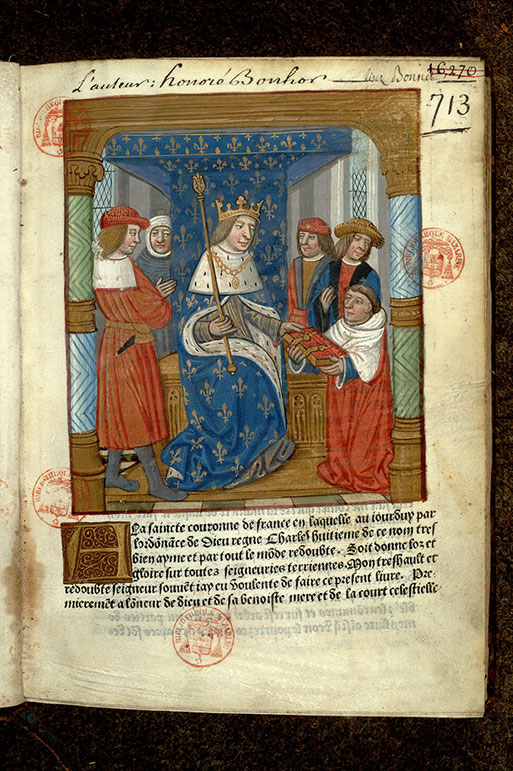 L'auteur : honoré Bonhor — Bonnet
16,270
713
A la saincte couronne de france en laquelle au iourduy par
lordōnāce de Dieu regne Charles huitieme de ce nom tres
bien ayme et par tout le mōde redoubte. Soit donne loz et
gloire sur toutes seigneuries terriennes. Mon treshault et
redoubte seigneur souuēt iay eu voulente de faire ce present liure. Pre
mierement a lōneur de dieu et de sa benoiste mere et de la court celestielle